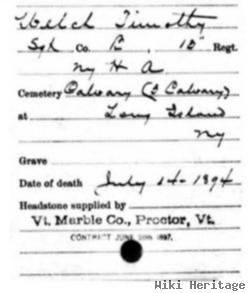 Welch Timothy
Sgt Co. E, 15 Regt.
Ny H A
Cemetery Calvary (3 Calvary)
at Long Island
Ny
Grave
Date of death July 14-1894
Headstone supplied by
Vt. Marble Co., Proctor, Vt.
CONTRACT JUNE 1897.
Wiki Heritage